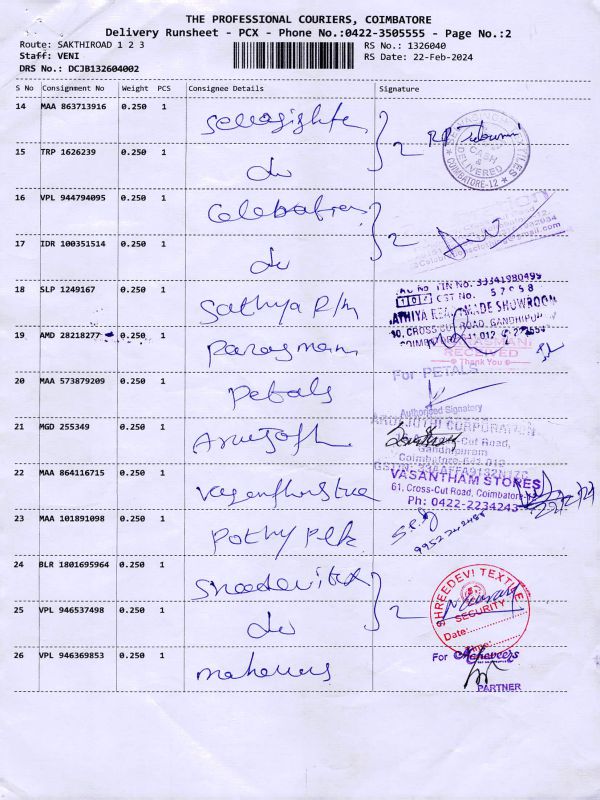 THE PROFESSIONAL COURIERS, COIMBATORE
Delivery Runsheet - PCX - Phone No.:0422-3505555 - Page No.:2
Route: SAKTHIROAD 1 2 3
RS No.: 1326040
Staff: VENI
RS Date: 22-Feb-2024
DRS No.: DCJB132604002
S No Consignment No Weight PCS Consignee Details Signature
14 MAA 863713916 0.250 1
CASH & DELIVERED
COIMBATORE-12
15 TRP 1626239 0.250 1 do
16 VPL 944794095 0.250 1
17 IDR 100351514 0.250 1 do
18 SLP 1249167 0.250 1 Sathya R/m
TIN No. 33341980499
CST No. 57958
SHOWROOM
CROSS CUT ROAD, GANDHIPURAM
19 AMD 28218277 0.250 1 Parasmani
RECEIVED
Thank You
20 MAA 573879209 0.250 1 Petals
For PETALS
Authorised Signatory
21 MGD 255349 0.250 1 Arunjothi
ARUNJOTHI CORPORATION
Cut Road,
Gandhipuram
Coimbatore-641 012
22 MAA 864116715 0.250 1 Vasantham Stores
VASANTHAM STORES
61, Cross-Cut Road, Coimbatore
Ph: 0422-2234243
23 MAA 101891098 0.250 1 Pothy
24 BLR 1801695964 0.250 1 Shreedevi tex
SHREEDEVI TEXTILE
SECURITY
Date:
25 VPL 946537498 0.250 1 do
26 VPL 946369853 0.250 1 mahaveers
For Mahaveers
PARTNER